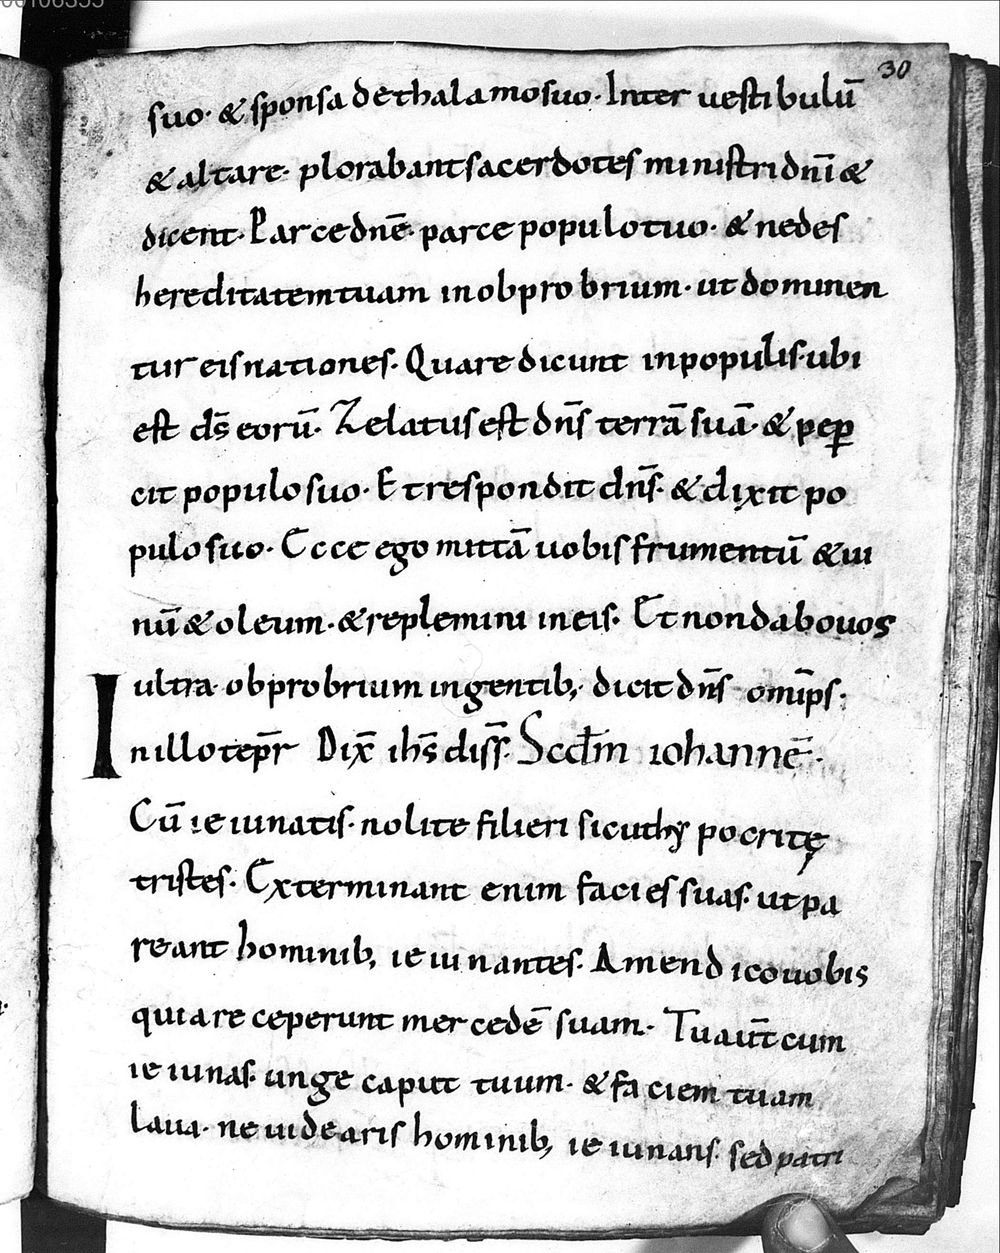 00106355
30
suo· & sponsa de thalamo suo· Inter uestibulū
& altare· plorabant sacerdotes ministri dn̄i &
dicent· Parce dn̄e· parce populo tuo· & ne des
hereditatem tuam in obprobrium· ut dominen
tur eis nationes· Quare dicunt in populis· ubi
est d̄s eorū· Zelatus est dn̄s terrā suā· & pep̱
cit populo suo· Et respondit dn̄s· & dixit po
pulo suo· Ecce ego mittā uobis frumentū & ui
nū & oleum· & replemini in eis· Et non dabo uos
ultra obprobrium in gentib;· dicit dn̄s omīps·
In illo tēpr Dix̄ ih̄s disc̄· Scdm̄ iohannē·
Cū ieiunatis· nolite fi lieri sicut hypocritę
tristes· Exterminant enim facies suas· ut pa
reant hominib; ieiunantes· Amen dico uobis
quia receperunt mercedē suam· Tu aut̄ cum
ieiunas· unge caput tuum· & faciem tuam
laua· ne uidearis hominib; ieiunans· sed patri